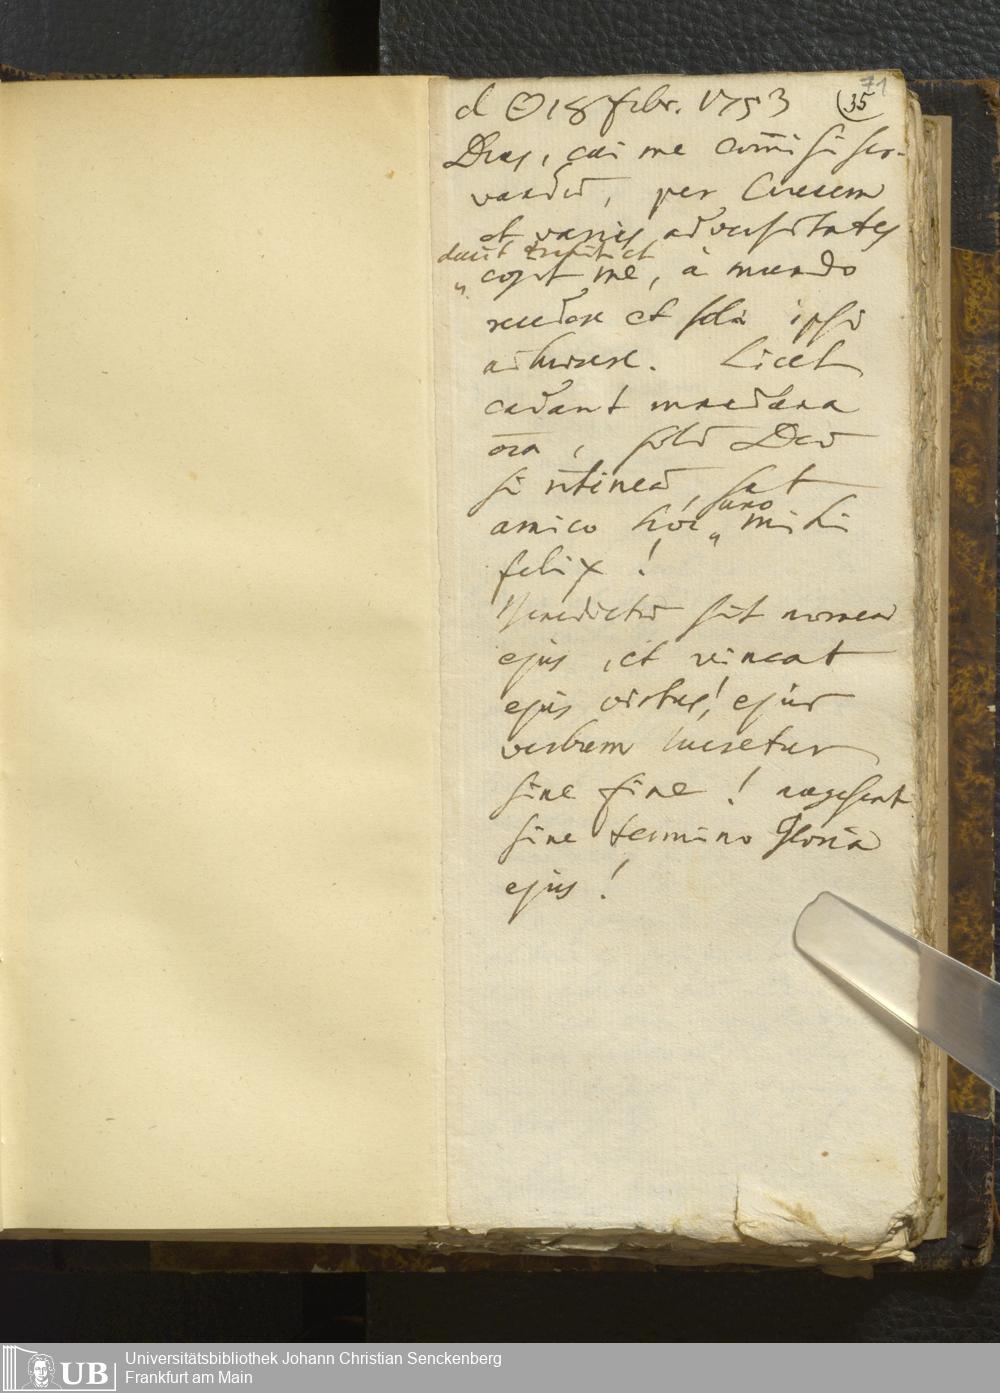 71
d ☉ 18 febr. 1753 (35
Deus, cui me com̄isi ser-
vandū, per Crucem
et varies adversitates
ducit
„ cogit me, à mundo
recedere et soli ipsi
adhaerere. Licet
cadant mundana
o͞ia, solū Deū
si r̄tineā, sat
amico
mihi
felix!
Benedictū sit nomen
ejus, et vincat
ejus virtus! ejus
verbum
sine fine!
sine termino Gloria
ejus!
UB
Universitätsbibliothek Johann Christian Senckenberg
Frankfurt am Main